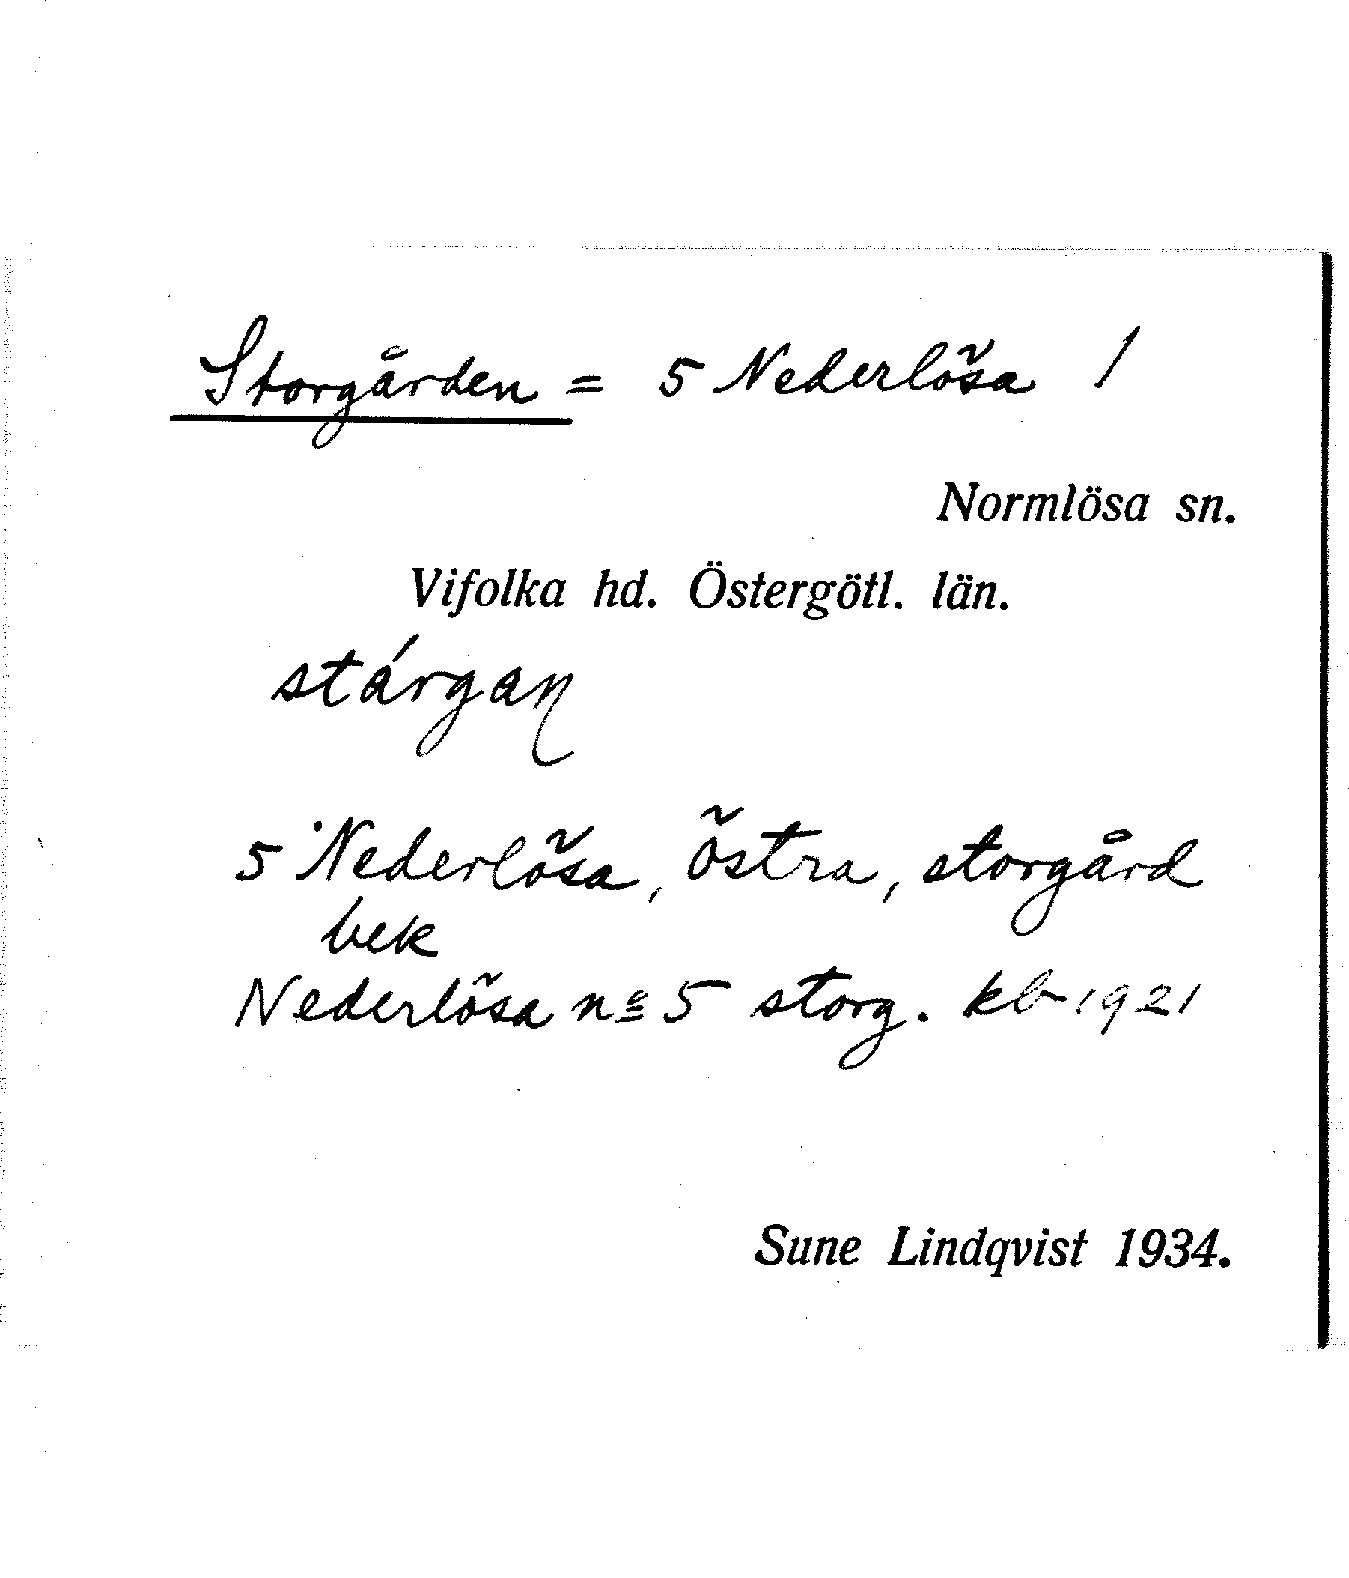 Storgården = 5 Nederlösa 1
Normlösa sn.
Vifolka hd. Östergötl. län.
stárgaɳ
5 Nederlösa, östra, storgård
bek
Nederlösa no 5 storg. kb 1921
Sune Lindqvist 1934.